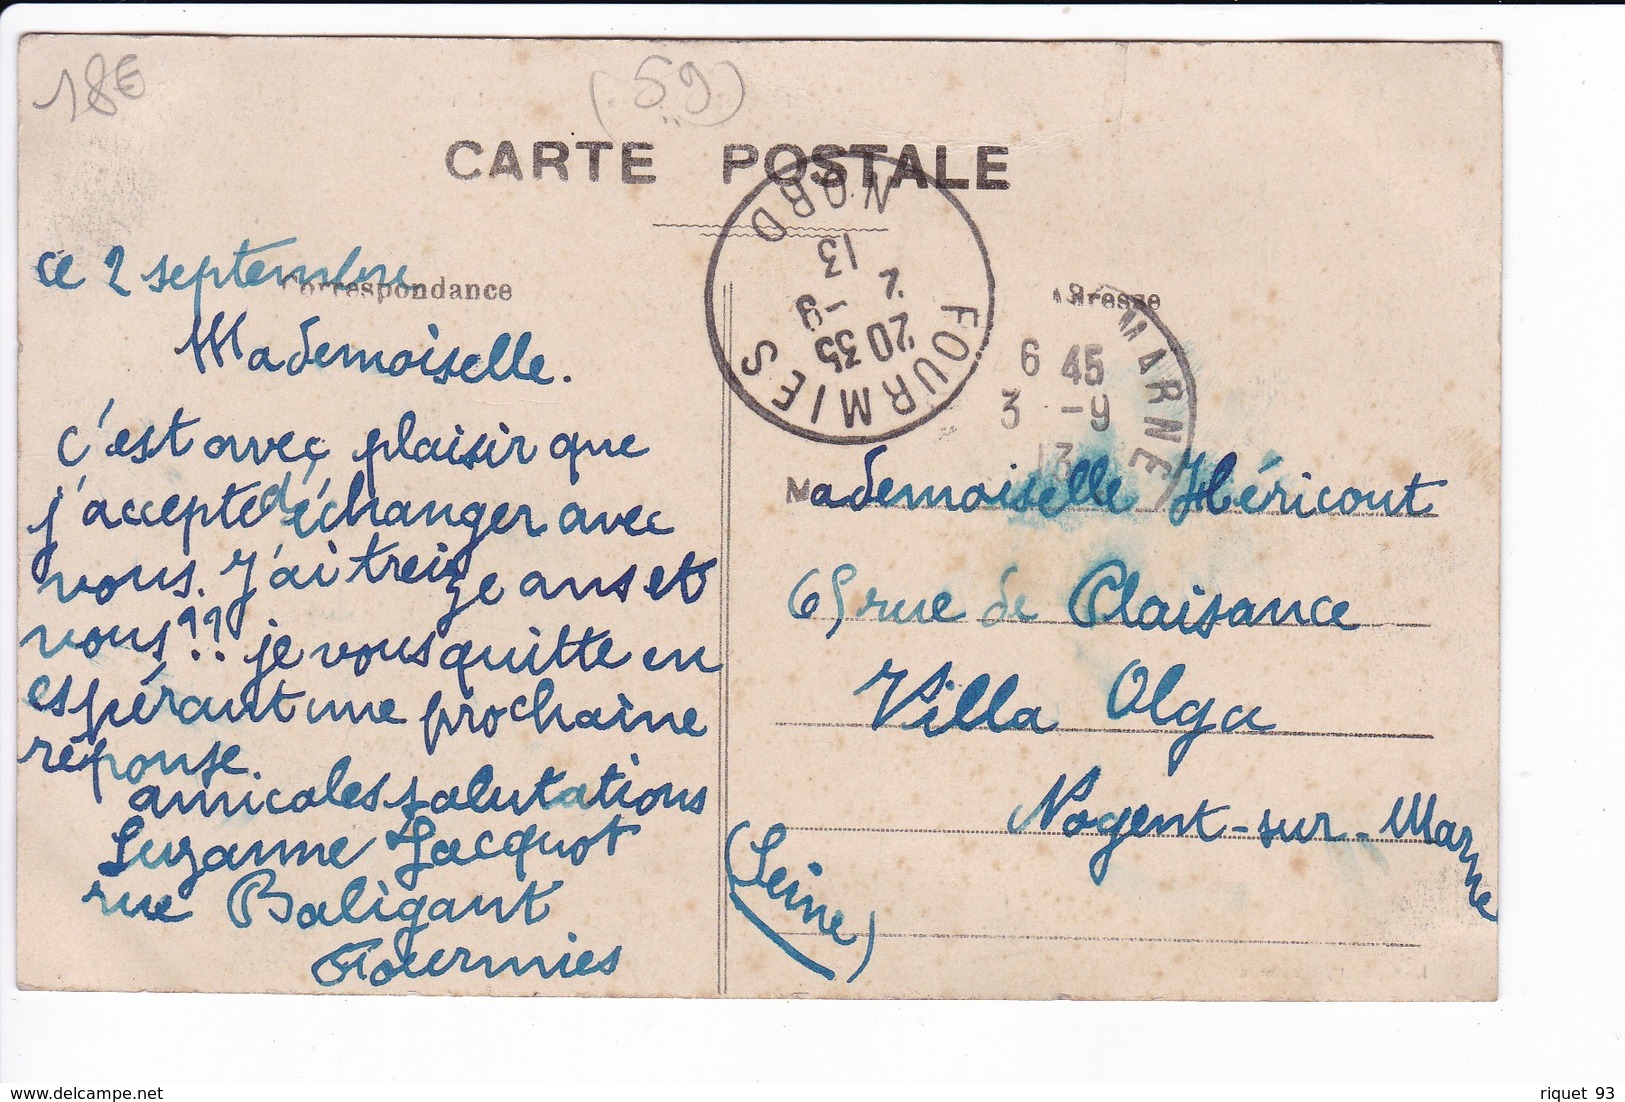 18€
(59)
CARTE POSTALE
FOURMIES
NORD
20 35
2 -9
13
ce 2 septembre
Correspondance
Mademoiselle.
c'est avec plaisir que
j'accepte d'échanger avec
vous. J'ai treize ans et
vous?? je vous quitte en
espérant une prochaine
réponse.
amicales salutations
Suzanne Jacquot
rue Baligant
Fourmies
Adresse
MARNE
6 45
3 -9
13
Mademoiselle Héricout
65 rue de Plaisance
Villa Olga
Nogent-sur-Marne
(Seine)
riquet 93